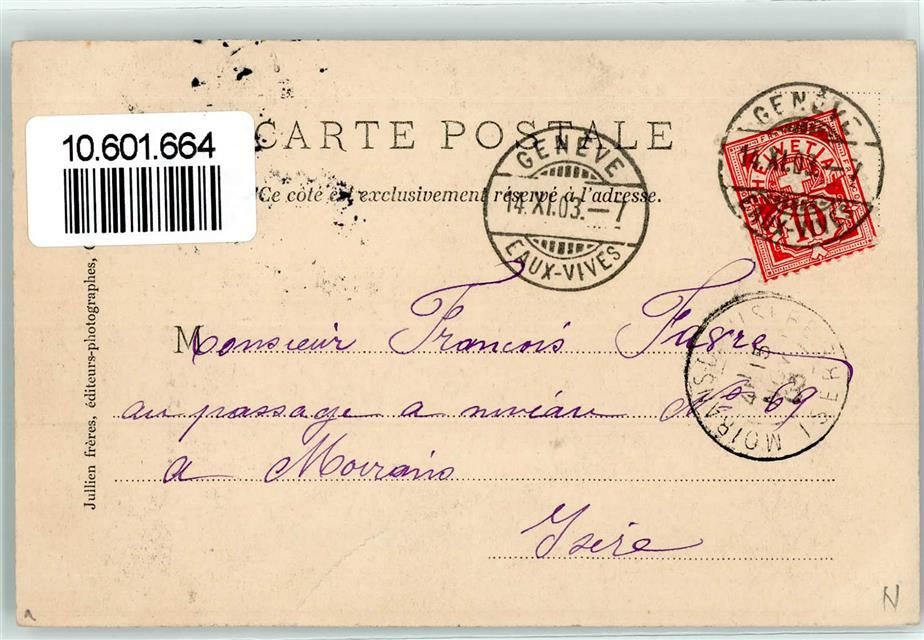 10.601.664
CARTE POSTALE
Ce côté est exclusivement réservé à l'adresse.
GENÈVE
14.XI.03.–7
EAUX-VIVES
GENÈVE
14.XI.03.–7
EAUX-VIVES
HELVETIA
10
Monsieur Francois Favre
au passage a niveau No 69
a Moirans
Isère
MOIRANS
ISERE
15
03
Jullien frères, éditeurs-photographes,
N